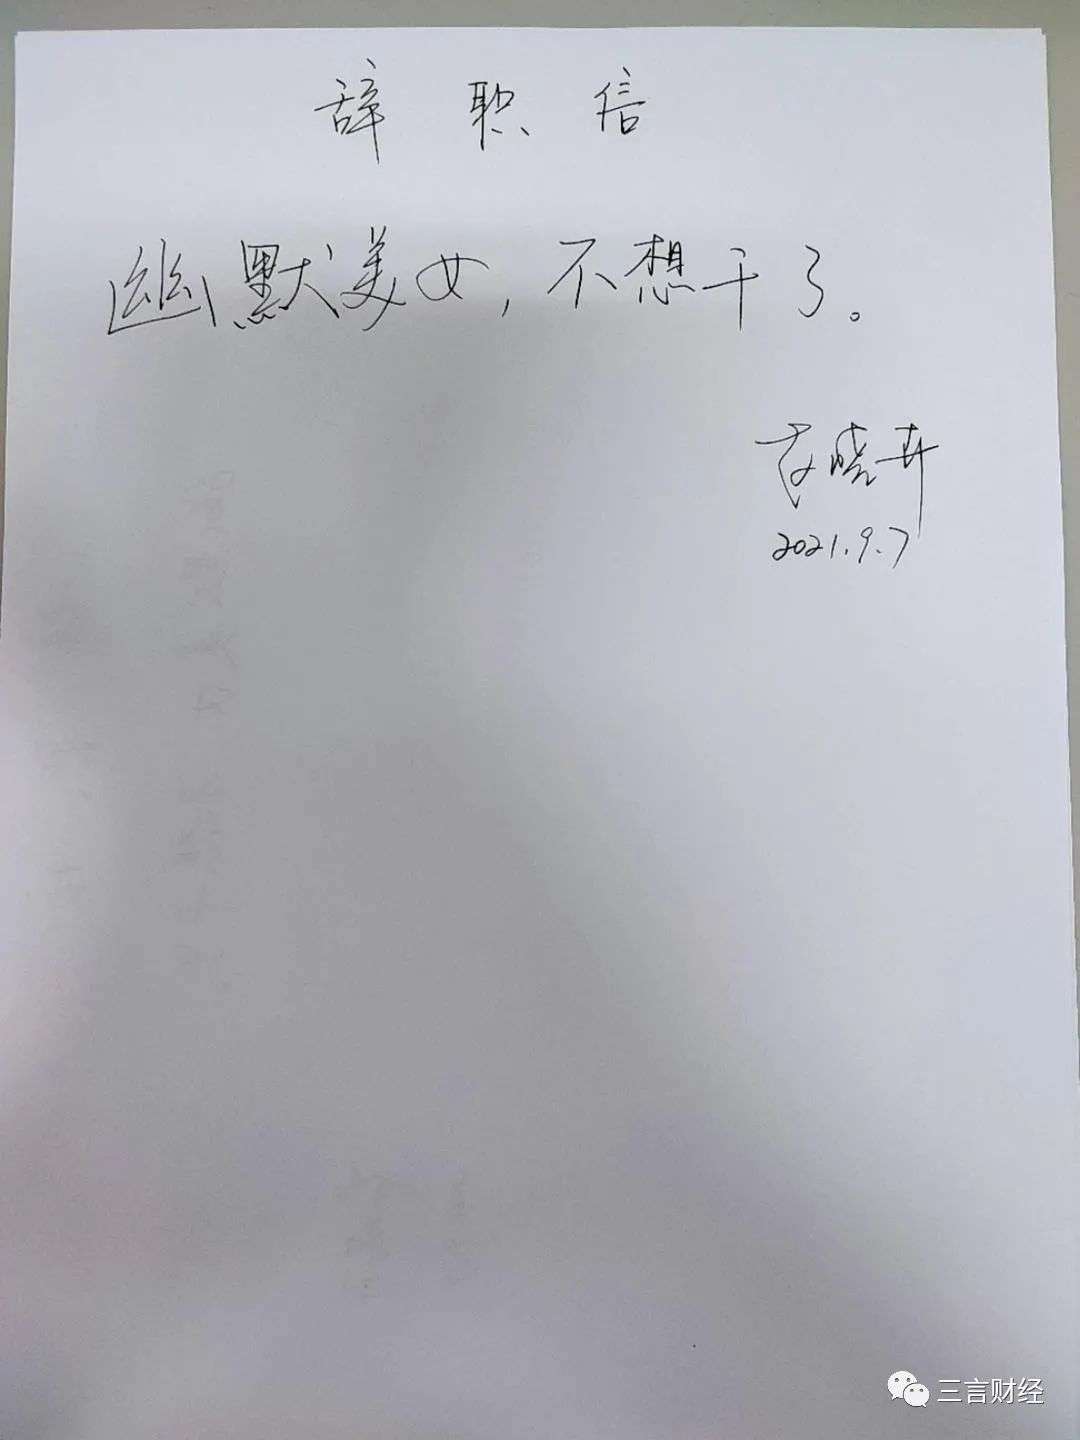 辞职信
幽默美女，不想干了。
晓卉
2021.9.7
三言财经